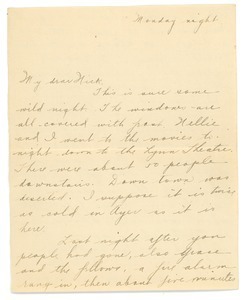 Monday night
My dear Nick,
This is sure some
wild night. The windows are
all covered with Nellie
and I went to the movies to-
night down to the Lynn Theatre.
There were about 50 people
downstairs. Down town was
deserted. I suppose it is twice
as cold in Ayer as it is
here.
Last night after you
people had gone, also Grace
and the fellows, a fire alarm
rang in, then about five minutes